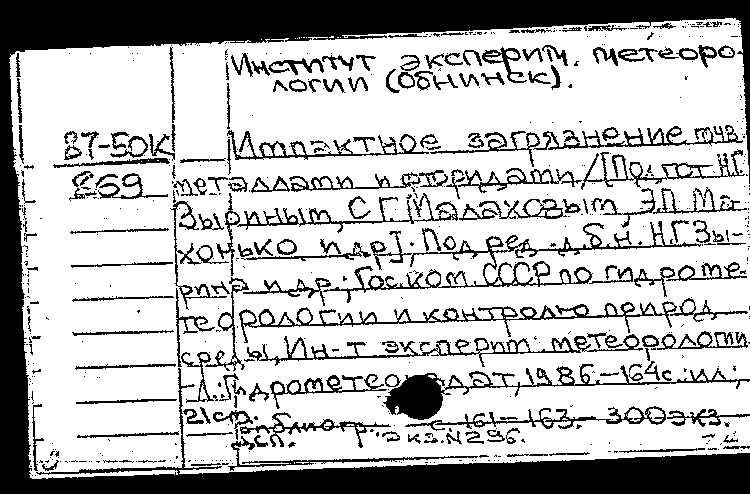 Институт эксперим. метеоро-
логии (Обнинск).
87-50К Импактное загрязнение почв
869 металлами и фторидами/[Подгот. Н.Г.
Зыриным, С.Г. Малаховым, Э.П. Ма-
хонько и др]; Под ред. д.б.н. Н.Г. Зы-
рина и др.; Гос. ком. СССР по гидроме-
теорологии и контролю природ.
среды, Ин-т эксперим. метеорологии
-Л.: Гидрометеоиздат, 1986.-164с.:ил.;
21см.
Библиогр.: с. 161-163. 300экз.
Дсп. Р. экз. N296.